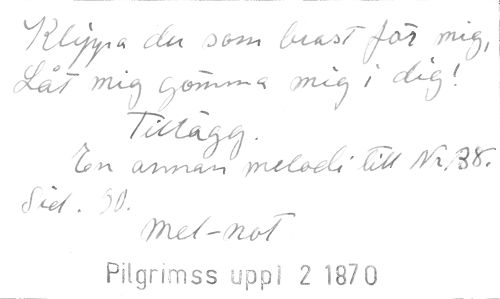 Klippa du som brast för mig,
Låt mig gömma mig i dig!
Tillägg.
En annan melodi till Nr. 38.
Sid. 30.
Mel-not
Pilgrimss uppl 2 1870